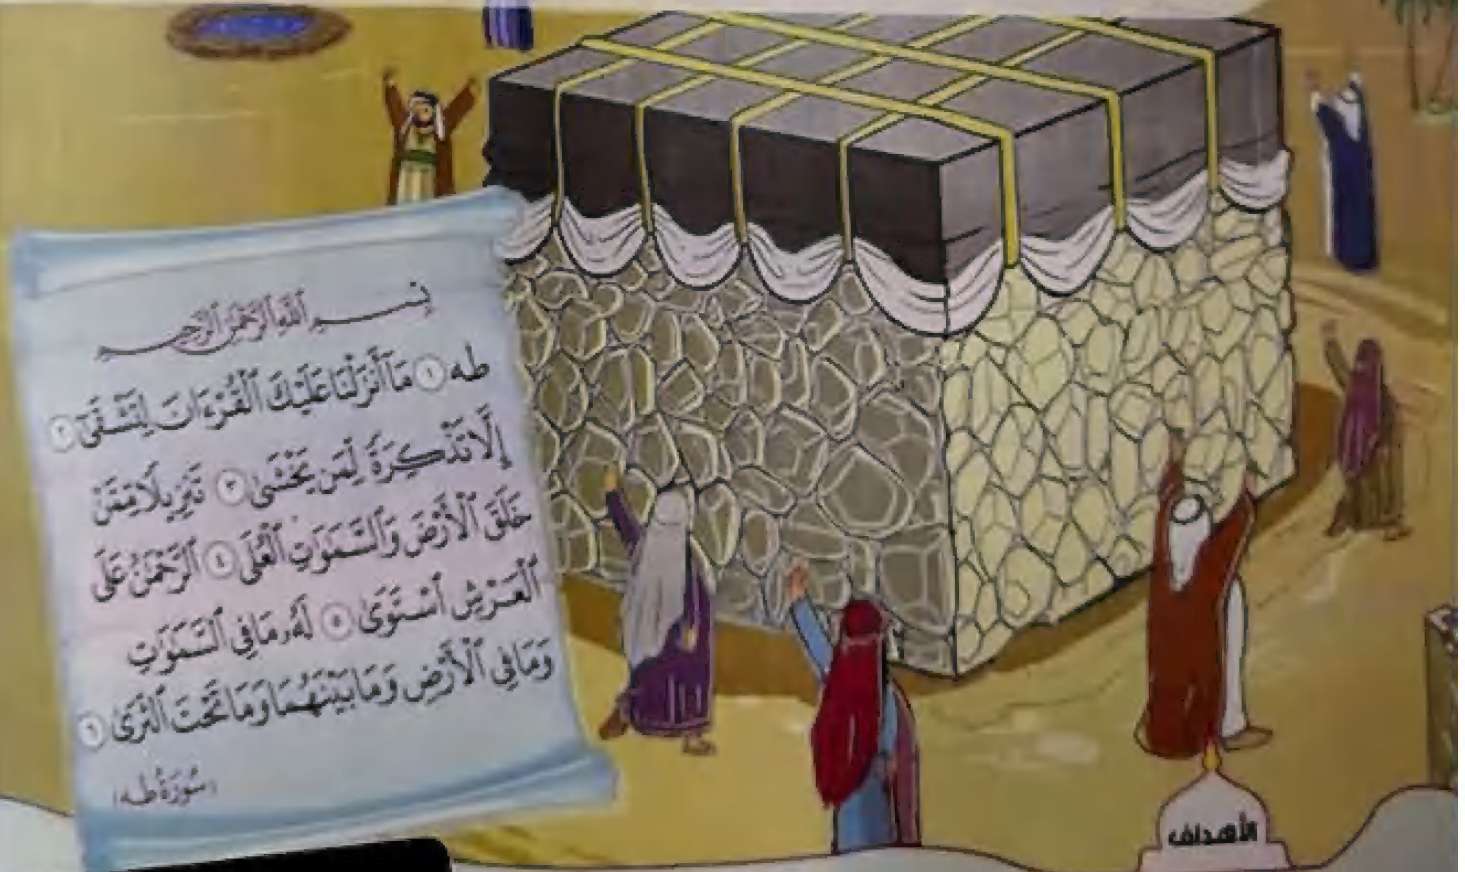 بِسْمِ ٱللَّهِ ٱلرَّحْمَٰنِ ٱلرَّحِيمِ
طه ١ مَآ أَنزَلْنَا عَلَيْكَ ٱلْقُرْءَانَ لِتَشْقَىٰٓ ٢
إِلَّا تَذْكِرَةً لِّمَن يَخْشَىٰ ٣ تَنزِيلًا مِّمَّنْ
خَلَقَ ٱلْأَرْضَ وَٱلسَّمَٰوَٰتِ ٱلْعُلَى ٤ ٱلرَّحْمَٰنُ عَلَى
ٱلْعَرْشِ ٱسْتَوَىٰ ٥ لَهُۥ مَا فِي ٱلسَّمَٰوَٰتِ
وَمَا فِي ٱلْأَرْضِ وَمَا بَيْنَهُمَا وَمَا تَحْتَ ٱلثَّرَىٰ ٦
(سُورَةُ طه)
الأهداف